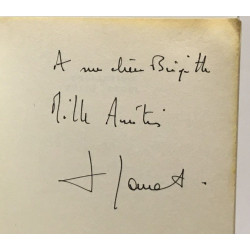 A ma chère Brigitte
Mille Amitiés